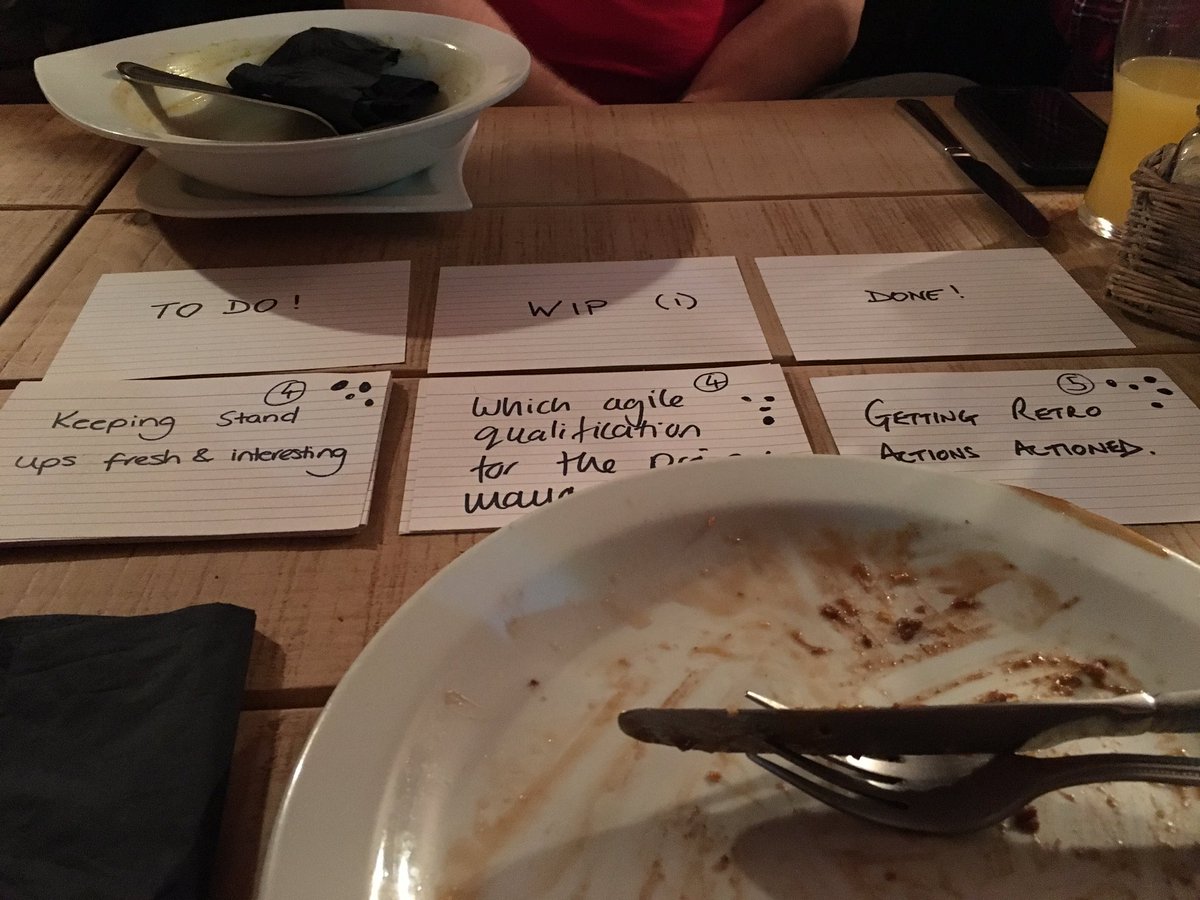 TO DO!
WIP (1)
DONE!
4
Keeping Stand
ups fresh & interesting
4
Which agile
qualification
for the
5
GETTING RETRO
ACTIONS ACTIONED.